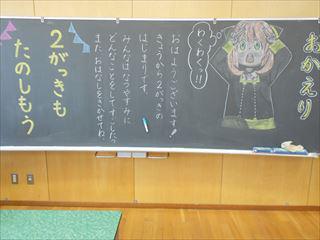 おかえり
わくわく!!
おはようございます!
きょうから2がっきの
はじまりです。
みんなはなつやすみに
どんなことをしてすごしたかな?
また、おはなしをきかせてね。
2がっきも
たのしもう